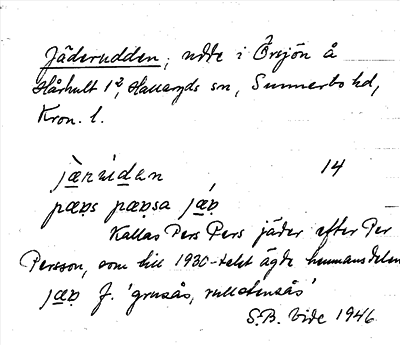 Jäderudden, udde i Örsjön å
Hårhult 1², Hallaryds sn, Sunnerbo hd,
Kron. l.
14
pæṇs pæṇsa
Kallas Pers Pers jäder efter Per
Persson, som till 1930-talet ägde hemmansdelen
f. 'grusås, rullstensås'
S.B. Vide 1946